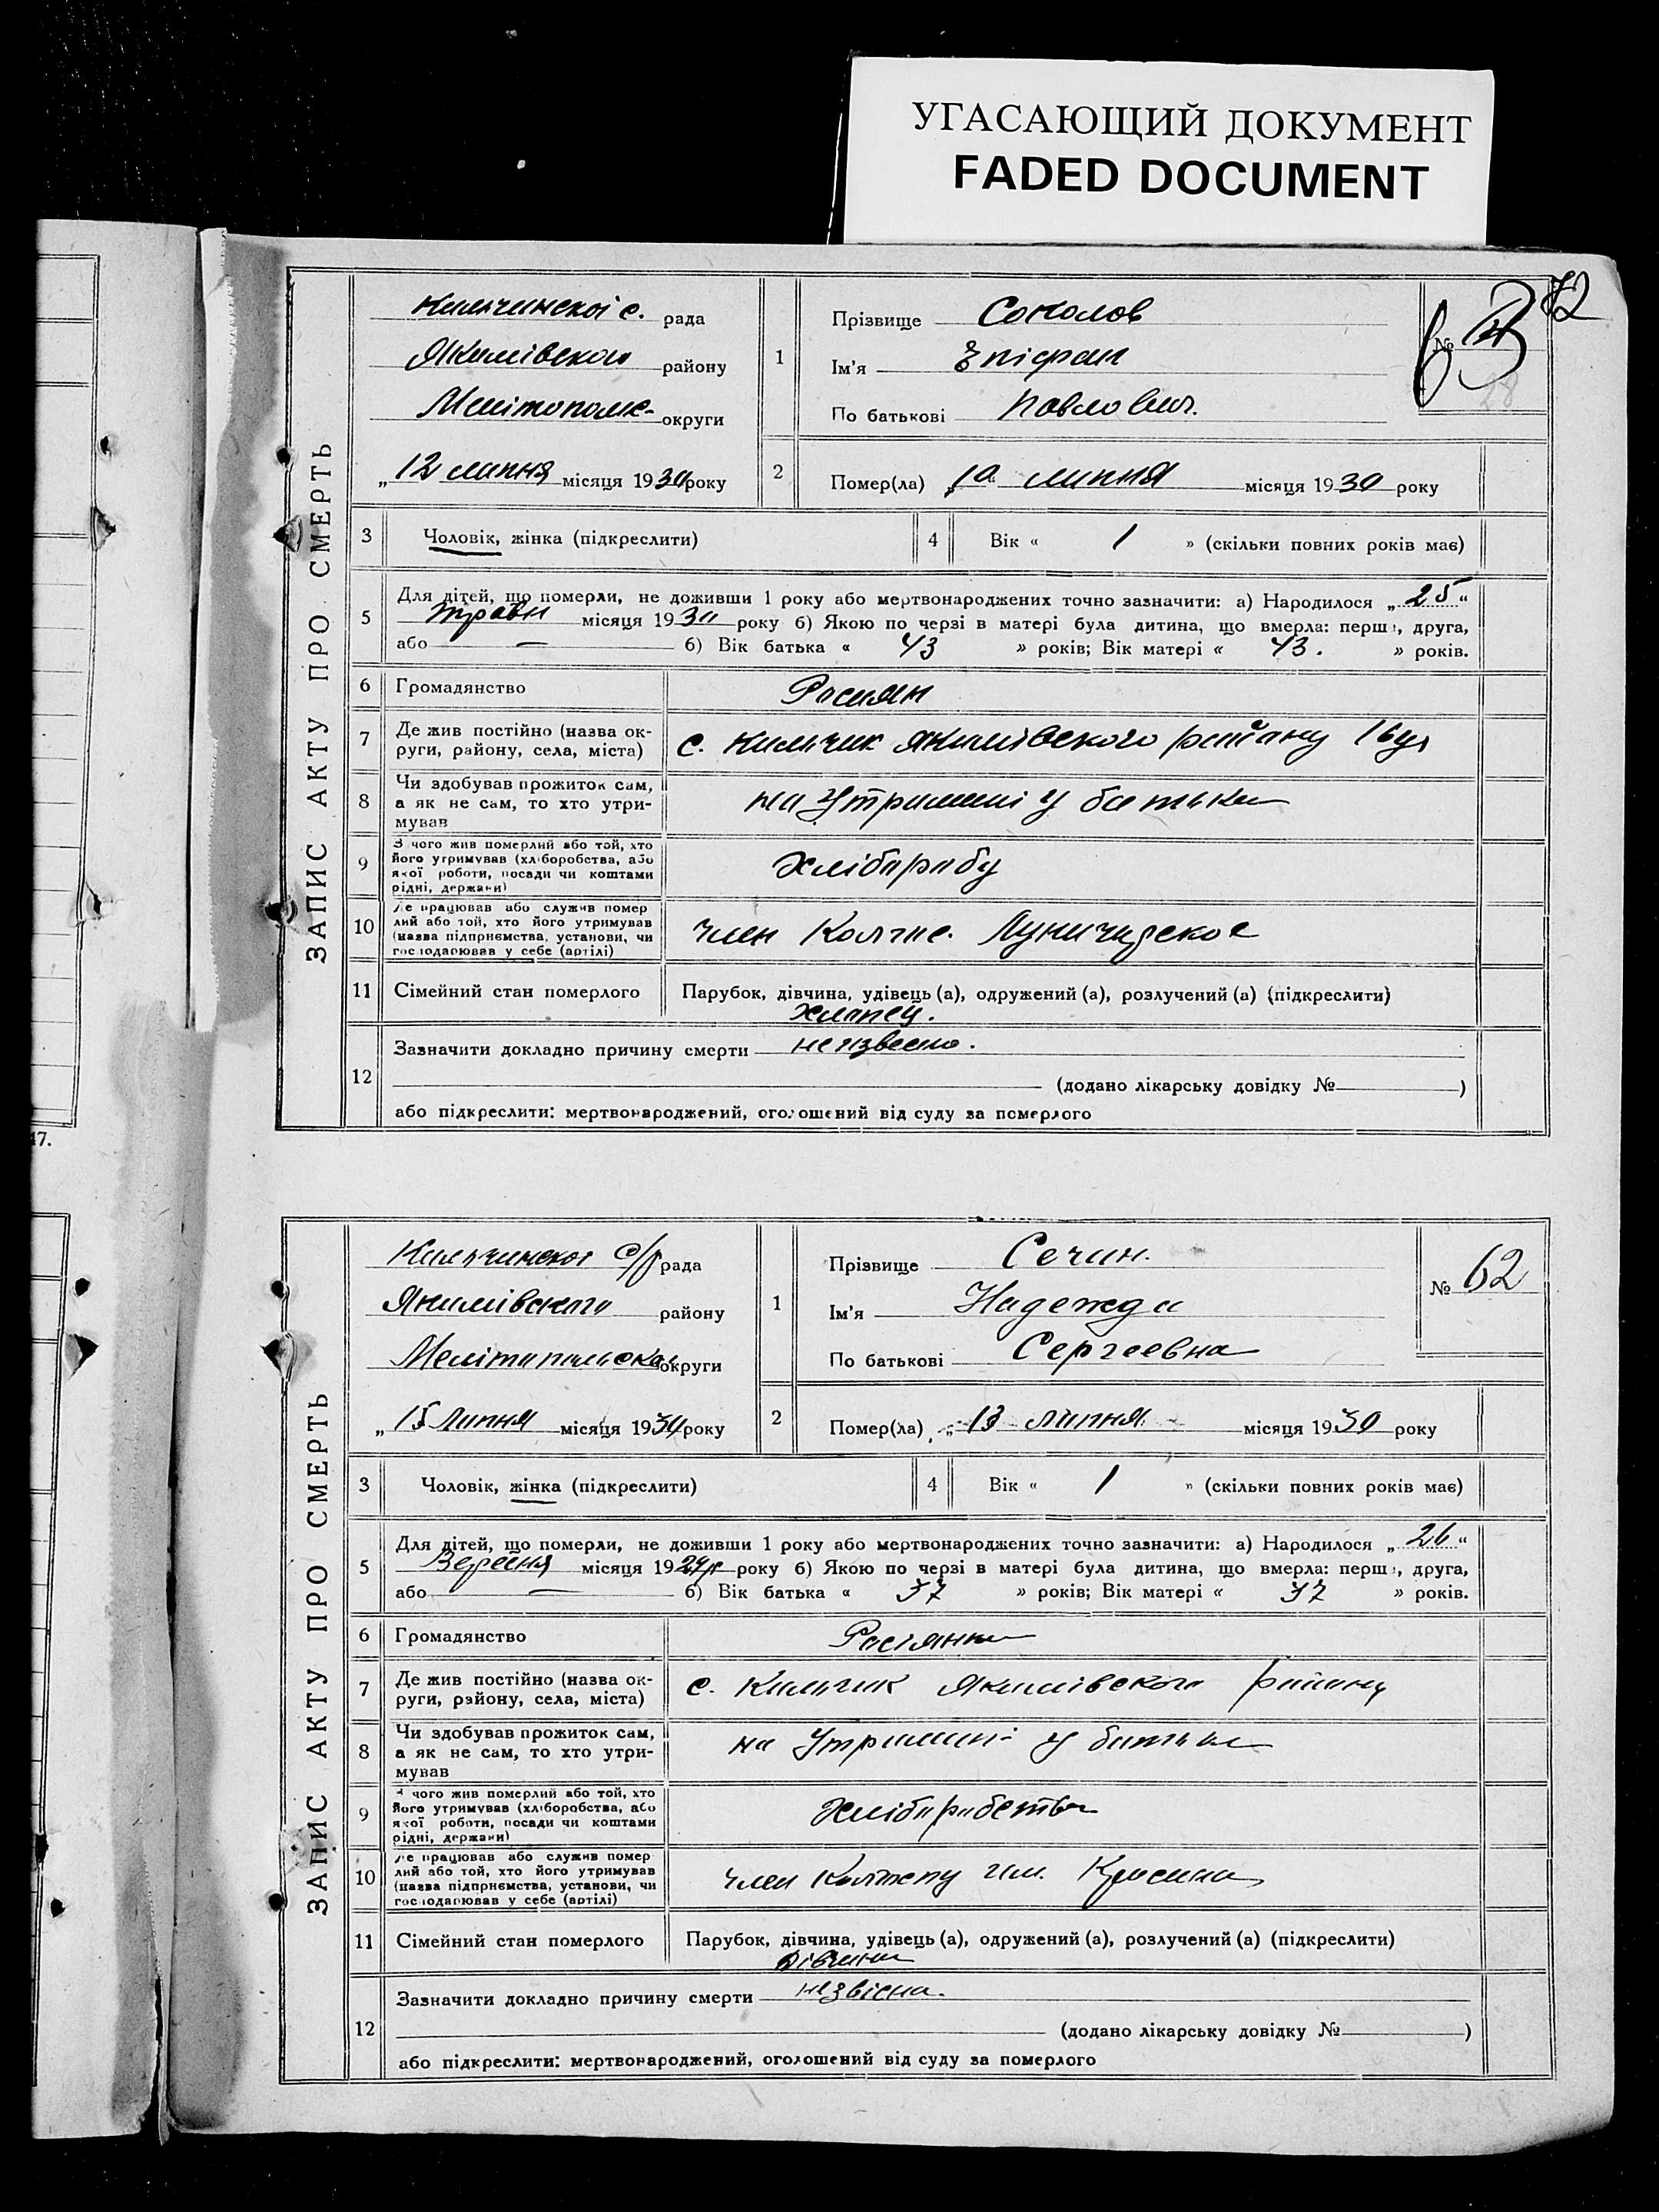 УГАСАЮЩИЙ ДОКУМЕНТ
FADED DOCUMENT
72
ЗАПИС АКТУ ПРО СМЕРТЬ
Кильчинскоі с. рада
Якимівского району
Мелітопольс- округи
„12 липня місяця 1930 року
1 Прізвище Соколов
Ім'я Епіфан
По батькові Павлович.
№
28
2 Помер(ла) „10 липня місяця 1930 року
3 Чоловік, жінка (підкреслити)
4 Вік « 1 » (скільки повних років має)
5 Для дітей, що померли, не доживши 1 року або мертвонароджених точно зазначити: а) Народилося „25“
Травн місяця 1930 року б) Якою по черзі в матері була дитина, що вмерла: перша, друга,
або — б) Вік батька « 43 » років; Вік матері « 43. » років.
6 Громадянство Росиян
7 Де жив постійно (назва ок-
руги, району, села, міста) с. Кильчик Якимівского району
8 Чи здобував прожиток сам,
а як не сам, то хто утри-
мував на Утримині у батька
9 З чого жив померлий або той, хто
його утримував (хліборобства, або
якої роботи, посади чи коштами
рідні, держави) Хліборобу
10 Де працював або служив помер
лий або той, хто його утримував
(назва підприємства, установи, чи
господарював у себе (артілі) член
11 Сімейний стан померлого Парубок, дівчина, удівець (а), одружений (а), розлучений (а) (підкреслити)
хлапец.
12 Зазначити докладно причину смерти неизвесно.
(додано лікарську довідку № )
або підкреслити: мертвонароджений, оголошений від суду за померлого
17.
ЗАПИС АКТУ ПРО СМЕРТЬ
Кильчинскоі с/р рада
Якимівского району
Мелітопольскоі округи
„15 Липня місяця 1930 року
1 Прізвище Сечин.
Ім'я Надежда
По батькові Сергеевна
№ 62
2 Помер(ла) „13 липня місяця 1930 року
3 Чоловік, жінка (підкреслити)
4 Вік « 1 » (скільки повних років має)
5 Для дітей, що померли, не доживши 1 року або мертвонароджених точно зазначити: а) Народилося „26“
Вересня місяця 1929 року б) Якою по черзі в матері була дитина, що вмерла: перша, друга,
або — б) Вік батька « 37 » років; Вік матері « 37 » років.
6 Громадянство Росіянка
7 Де жив постійно (назва ок-
руги, району, села, міста) с. Кильчик Якимівского району
8 Чи здобував прожиток сам,
а як не сам, то хто утри-
мував на Утримині у батька
9 З чого жив померлий або той, хто
його утримував (хліборобства, або
якої роботи, посади чи коштами
рідні, держави) Хліборобства
10 Де працював або служив помер
лий або той, хто його утримував
(назва підприємства, установи, чи
господарював у себе (артілі) член Колгоспу им. Красина
11 Сімейний стан померлого Парубок, дівчина, удівець (а), одружений (а), розлучений (а) (підкреслити)
Дівчина
12 Зазначити докладно причину смерти незвісна.
(додано лікарську довідку № )
або підкреслити: мертвонароджений, оголошений від суду за померлого